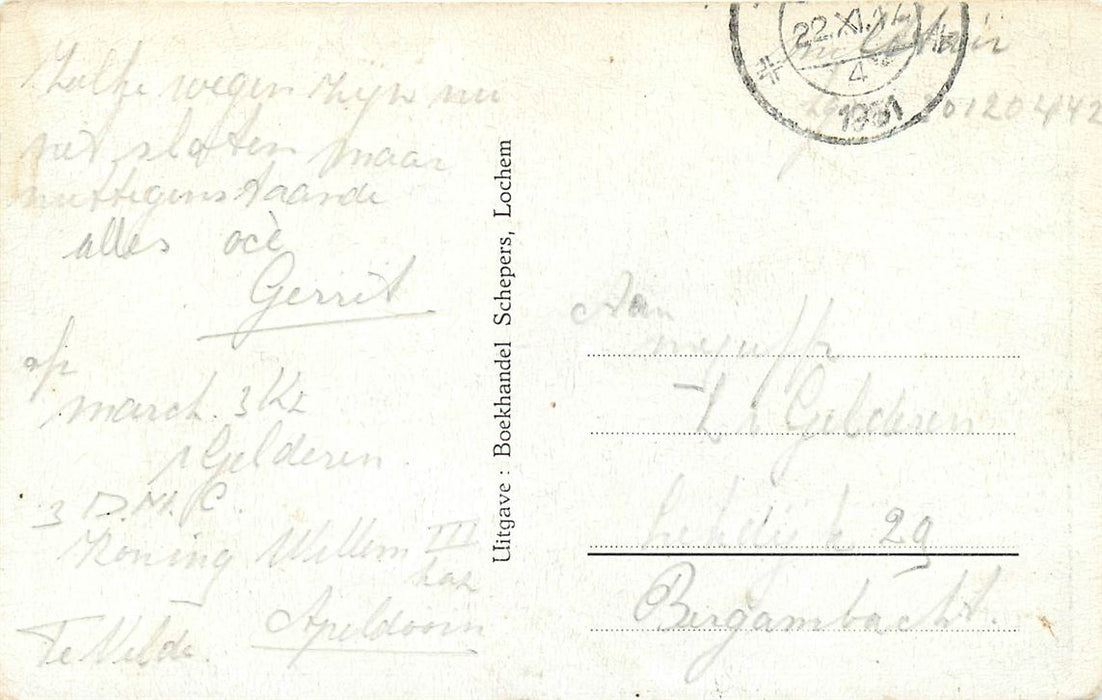 Zulke wegen zijn nu
niet sloten maar
niettegenstaande
alles ocè
Gerrit
afz
march. 3 Kl
v Gelderen
3 D.M.C.
Koning Willem III
kaz
Apeldoorn
Te Velde.
Uitgave : Boekhandel Schepers, Lochem
22.XI.
4
1951
201204442
Aan
mejuffr
v Gelderen
29
Bergambacht.